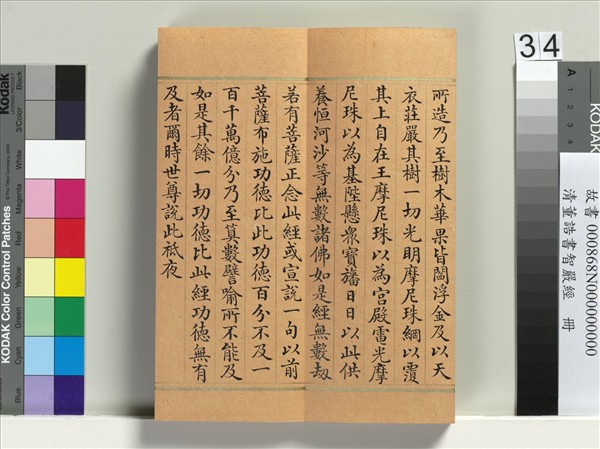 所造乃至樹木華果皆閻浮金及以天
衣莊嚴其樹一切光明摩尼珠網以覆
其上自在王摩尼珠以為宮殿電光摩
尼珠以為基陛懸衆寶旛日日以此供
養恒河沙等無數諸佛如是經無數劫
若有菩薩正念此經或宣說一句以前
菩薩布施功德比此功德百分不及一
百千萬億分乃至算數譬喻所不能及
如是其餘一切功德比此經功德無有
及者爾時世尊說此祇夜
34
故書 000868N000000000
清董誥書智嚴經 冊
KODAK Color Control Patches
Kodak
Blue
Cyan
Green
Yellow
Red
Magenta
White
3/Color
Black
A
1
2
3
4
KODAK